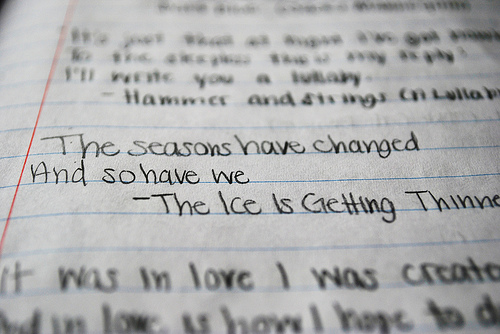 It's just that at night I've got
To the
I'll write you a lullaby.
- Hammer and Strings (A Lullab
The seasons have changed
And so have we
-The Ice Is Getting Thinne
It was in love I was create
And in love is how I hope to d